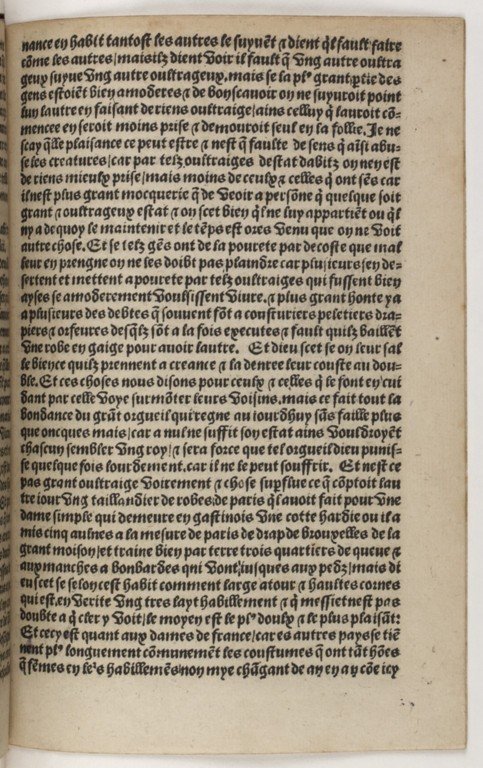 nance en habit tantost les autres le suyuẽt ⁊ dient q̃l fault faire
cõme les autres/mais ilz dient voir il fault q̃ vng autre oultra
geux suyue vng autre oultrageux. mais se la plꝰ grant ꝑtie des
gens estoiẽt bien amoderes ⁊ de bon scauoir on ne suyuroit point
lun lautre en faisant de riens oultraige/ains celluy q̃ lauroit cõ-
mencee en seroit moins prise ⁊ demouroit seul en sa follie. Je ne
scay q̃lle plaisance ce peut estre ⁊ nest q̃ faulte de sens q̃ aĩsi abu-
se les creatures/car par telz oultraiges destat dabitz on nen est
de riens mieulx prise/mais moins de ceulx ⁊ celles q̃ ont sẽs car
il nest plus grant mocquerie q̃ de veoir a persõne q̃ quelque soit
grant ⁊ oultrageux estat ⁊ on scet bien q̃l ne luy appartiẽt ou q̃l
ny a de quoy le maintenir et le tẽps est ores venu que on ne voit
autre chose. Et se telz gẽs ont de la pourete par decoste que mal
leur en prengne on ne les doibt pas plaindre car plusieurs sen de-
sertent et mettent a pourete par telz oultraiges qui fussent bien
ayses se amoderement voulsissent viure. ⁊ plus grant honte y a
a plusieurs des debtes q̃ souuent sõt a cousturiers peletiers dra-
piers ⁊ orfeures desq̃lz sõt a la fois executes ⁊ fault quilz baillẽt
vne robe en gaige pour auoir lautre. Et dieu scet se on leur sal
le bien ce quilz prennent a creance ⁊ la denree leur couste au dou-
ble. Et ces choses nous disons pour ceulx ⁊ celles q̃ le font en cui
dant par celle voye surmõter leurs voisins. mais ce fait tout la
bondance du grãt orgueil qui regne au iourdhuy sãs faille plus
que oncques mais/car a nul ne suffit son estat ains vouldroyẽt
chascun sembler vng roy/⁊ sera force que tel orgueil dieu punis-
se quelque fois lourdement. car il ne le peut souffrir. Et nest ce
pas grant oultraige voirement ⁊ chose suꝑflue ce q̃ cõptoit lau
tre iour vng taillandier de robes/de paris q̃l auoit fait pour vne
dame simple qui demeure en gastinois vne cotte hardie ou il a
mis cinq aulnes a la mesure de paris de drap de brouxelles de la
grant moison/et traine bien par terre trois quartiers de queue ⁊
aux manches a bonbardes qui vont iusques aux pedz/mais di
eu scet se selon cest habit comment large atour ⁊ haultes cornes
qui est. en verite vng tres layt habillement ⁊ q̃ messiet nest pas
doubte a q̃ cler y voit/le moyen est le plꝰ doulx ⁊ le plus plaisãt:
Et cecy est quant aux dames de france/car es autres pays se tiẽ
nent plꝰ longuement cõmunemẽt les coustumes q̃ ont tãt hões
q̃ fẽmes en leꝰs habillemẽs/non mye chãgant de an en an cõe icy